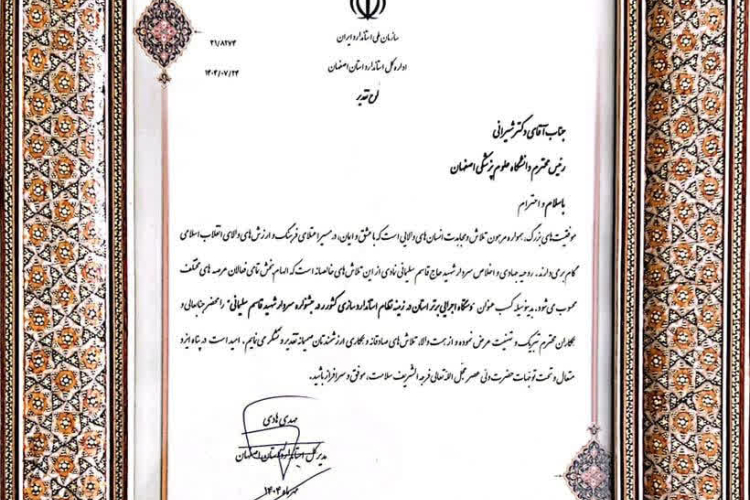 سازمان ملی استاندارد ایران
۴۱/۸۲۷۳
اداره کل استاندارد استان اصفهان
۱۴۰۴/۰۷/۲۳
لوح تقدیر
جناب آقای دکتر شیرانی
رئیس محترم دانشگاه علوم پزشکی اصفهان
باسلام و احترام
موفقیت های بزرگ، همواره مرهون تلاش و مجاهدت انسان های والایی است که با عشق و ایمان، در مسیر اعتلای فرهنگ و ارزش های والای انقلاب اسلامی
گام برمی دارند. روحیه جهادی و اخلاص سردار شهید حاج قاسم سلیمانی نمادی از این تلاش های خالصانه است که الهام بخش تمامی فعالان عرصه های مختلف
محسوب می شود. بدینوسیله کسب عنوان "دستگاه اجرایی برتر استان در زمینه نظام استانداردسازی کشور در جشنواره سردار شهید قاسم سلیمانی" را محضر جنابعالی و
همکاران محترم تبریک و تهنیت عرض نموده و از همت والا، تلاش های صادقانه و همکاری ارزشمندتان صمیمانه تقدیر و تشکر می نمایم. امید است در پناه ایزد
متعال و تحت توجهات حضرت ولی عصر عجل الله تعالی فرجه الشریف سلامت، موفق و سرافراز باشید.
مهدی هادی
مدیر کل استاندارد استان اصفهان
مهرماه ۱۴۰۴